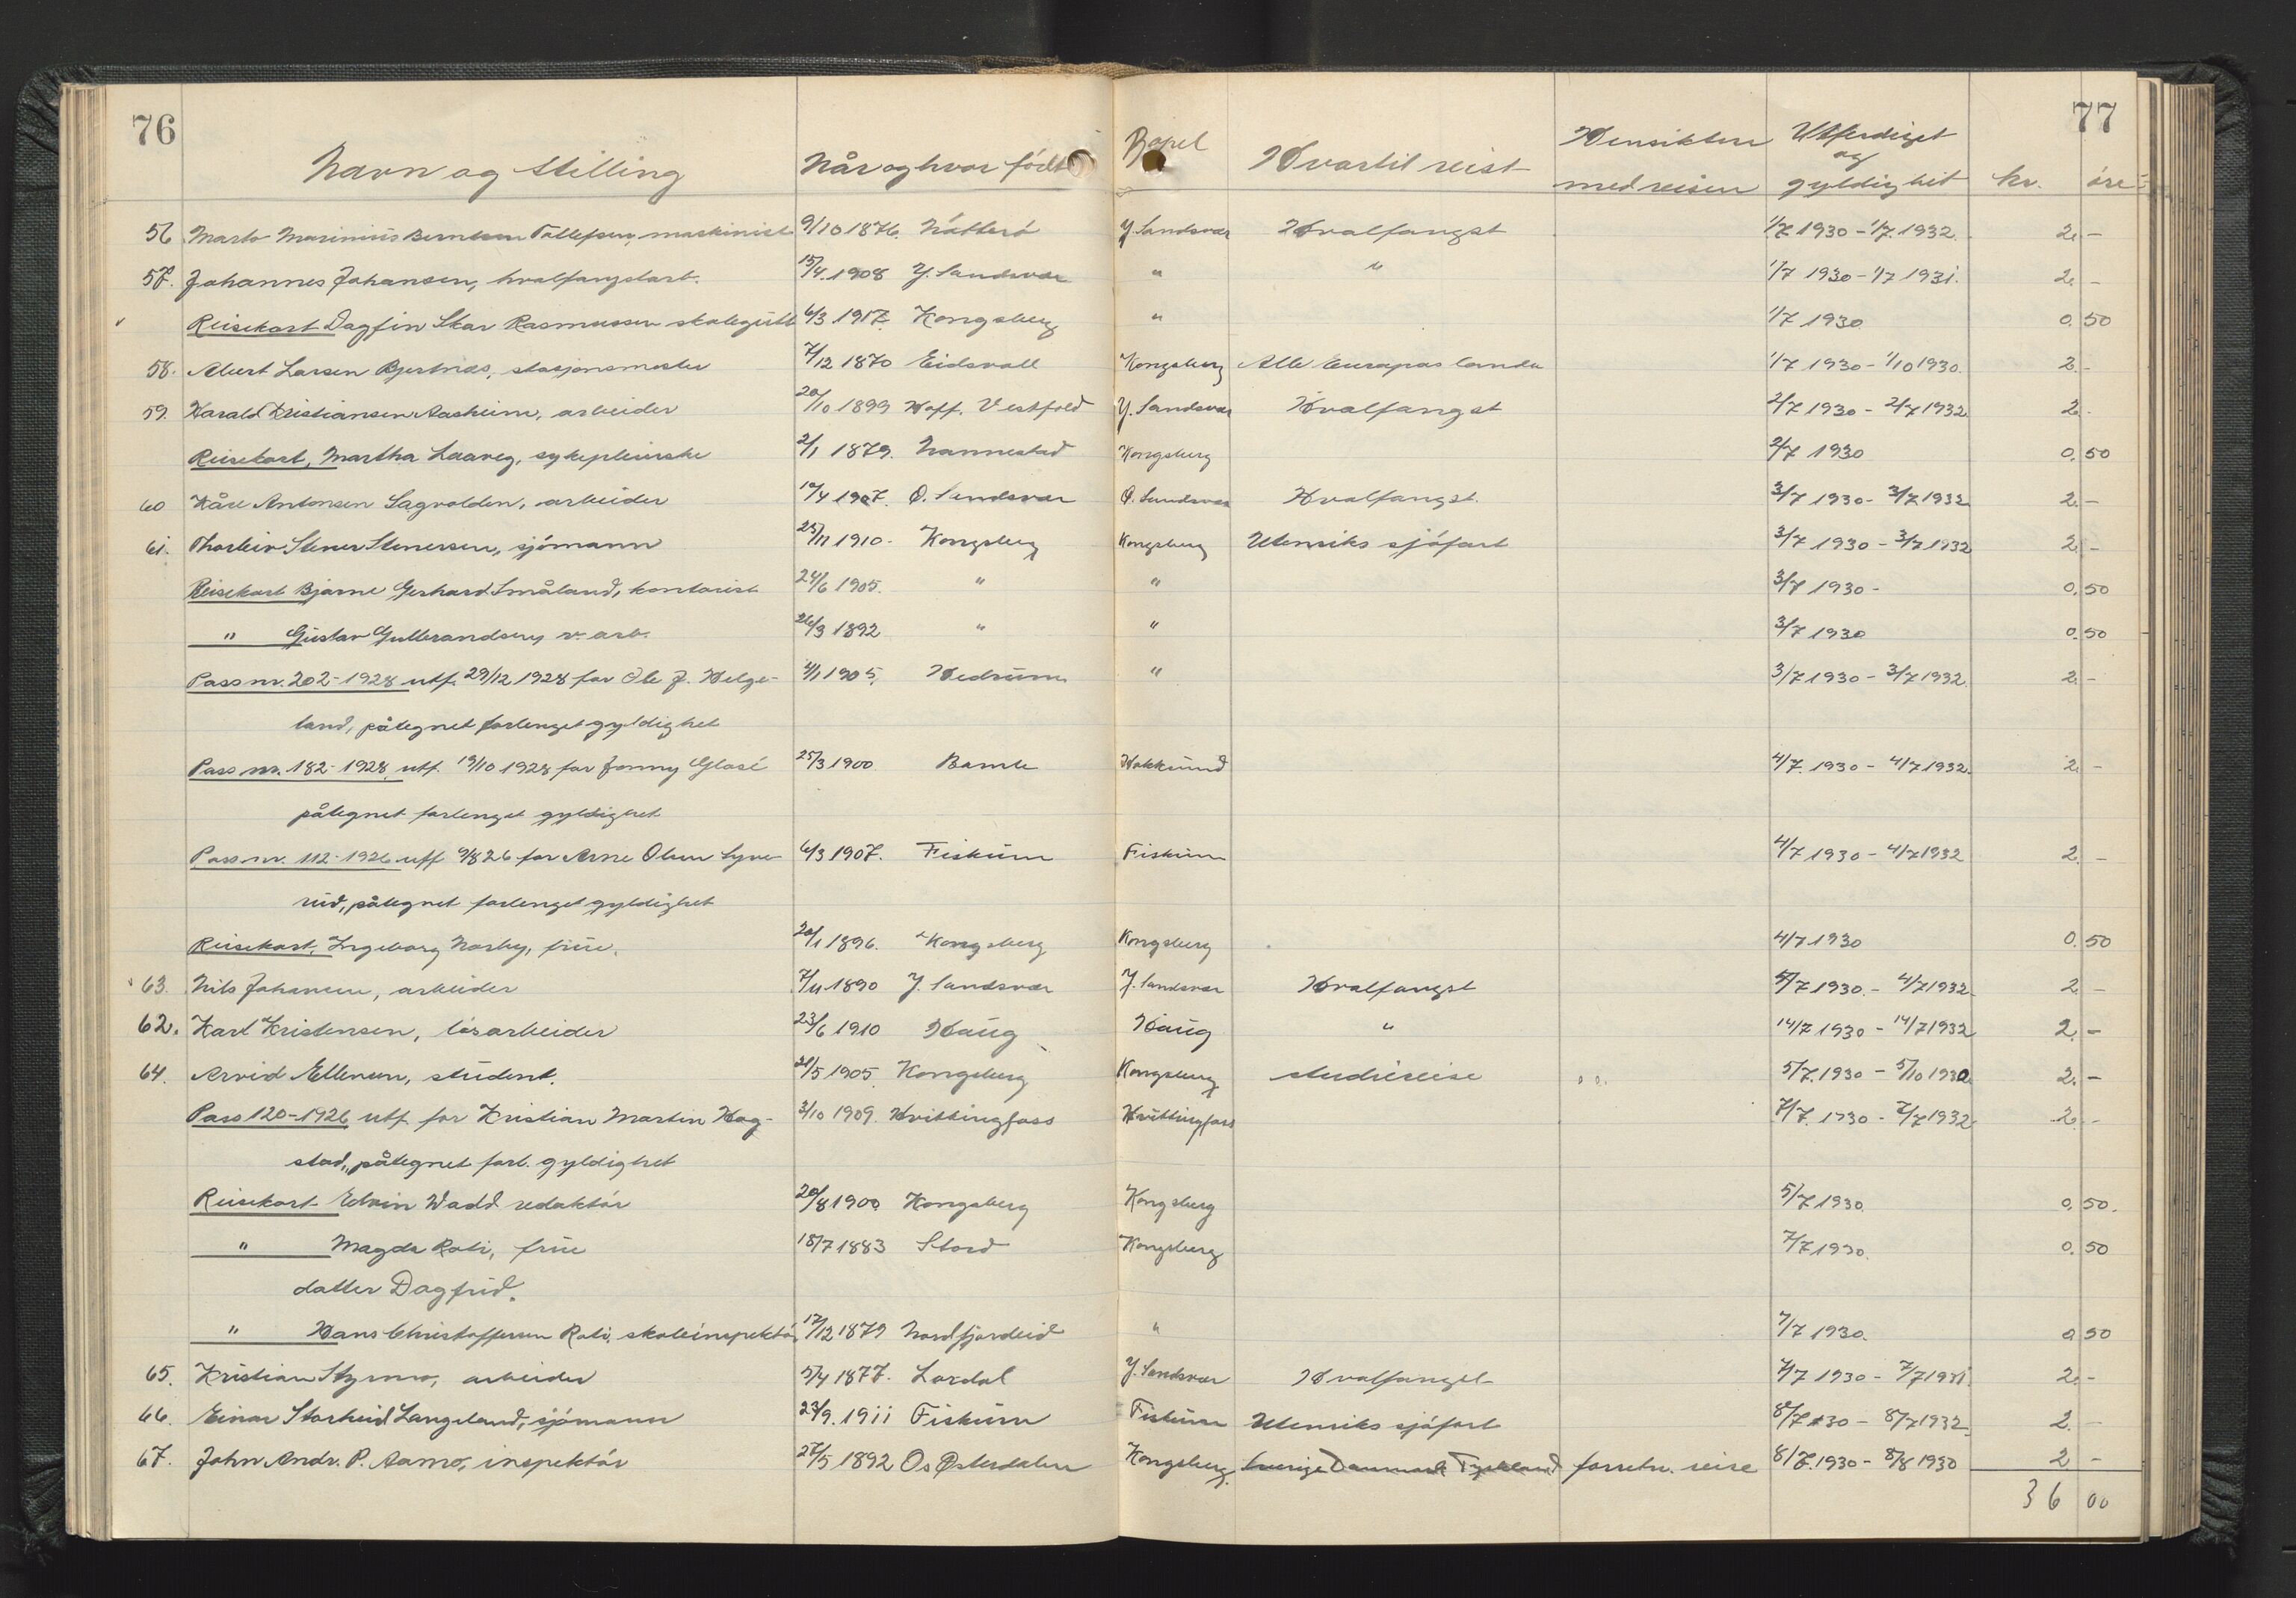 76
77
Navn og stilling Når og hvor født Bopel Hvortil reist Hensikten med reisen Utferdiget og gyldighet kr. öre
56 Marinius Berntsen Tollefsen, maskinist 9/10 1876. Nötterö Y. Sandsvær Hvalfangst 1/7 1930 - 1/7 1932. 2. -
57. Johannes Johansen, hvalfangstarb. 15/4. 1908 Y. Sandsvær " " 1/7 1930 - 1/7 1931. 2. -
Reisekort Dagfin Skar Rasmussen skolegutt 6/3 1917 Kongsberg " 1/7 1930 0. 50
58. Larsen Bjertnæs, stasjonsmester 7/12 1870 Eidsvoll Kongsberg Alle Europas lande 1/7 1930 - 1/10 1930. 2. -
59. Harald Kristiansen Aasheim, arbeider 20/10 1899 Hoff. Vestfold Y. Sandsvær Hvalfangst 2/7 1930 - 2/7 1932. 2. -
Reisekort, Martha Laaveg, sykepleierske 2/1 1879. Nannestad Kongsberg 2/7 1930 0. 50
60 Kåre Antonsen Sagvolden, arbeider 19/4 1907. Ö. Sandsvær Ö. Sandsvær Hvalfangst. 3/7 1930 - 3/7 1932 2. -
61. Thorleiv Stener Stenersen, sjömann 25/11 1910 - Kongsberg Kongsberg Utenriks sjöfart 3/7 1930 - 3/7 1932 2. -
Reisekort Bjarne Gerhard Småland, kontorist 24/6 1905. " " 3/7 1930 - 0. 50
" Gustav Gulbrandsen, v. arb. 26/3 1892 " " 3/7 1930 0. 50
Pass nr. 202 - 1928 utf. 29/12 1928 for Ole J. Helge- 4/1 1905. Hedrum " 3/7 1930 - 3/7 1932. 2. -
land, påtegnet forlenget gyldighet
Pass nr. 182 - 1928 utf. 19/10 1928 for Jonny Glosé 25/3 1900 Bamle Hokksund 4/7. 1930 - 4/7 1932. 2. -
påtegnet forlenget gyldighet
Pass nr. 112 - 1926 utf 9/8 26 for Arne Olsen Lyve- 6/3 1907. Fiskum Fiskum 4/7 1930 - 4/7 1932 2. -
rud, påtegnet forlenget gyldighet
Reisekort, Ingeborg Norby, frue. 20/1 1896. Kongsberg Kongsberg 4/7 1930 0. 50
63. Nils Johansen, arbeider 7/11 1890 Y. Sandsvær Y. Sandsvær Hvalfangst 4/7 1930. - 4/7 1932. 2. -
62. Karl Kristensen, lösarbeider 23/6 1910 Haug Haug " 14/7 1930 - 14/7 1932 2. -
64. Arvid Ellevsen, student. 21/5 1905 Kongsberg Kongsberg studiereise 5/7. 1930 - 5/10 1930 2. -
Pass 120 - 1926 utf. for Kristian Martin Hog- 3/10 1909. Hvittingfoss Hvittingfoss 7/7. 1930 - 7/7 1932. 2. -
stad, påtegnet forl. gyldighet
Reisekort Edvin Wadd redaktör 20/8 1900 Kongsberg Kongsberg 5/7 1930. 0. 50.
" Magda Roti, frue 18/7 1883 Stord Kongsberg 7/7 1930. 0. 50
datter Dagfrid.
" Hans Christoffersen Roti, skoleinspektör 17/12 1879 Nordfjordeid " 7/7 1930. 0 50
65. Kristian Styrmo, arbeider 5/4 1877. Lardal Y. Sandsvær Hvalfangst 7/7 1930 - 7/7 1931. 2. -
66. Einar Storheid Langeland, sjömann 23/9. 1911 Fiskum Fiskum Utenriks sjöfart 8/7 30 - 8/7 1932. 2. -
67. John Andr. P. Aamo, inspektör 27/5 1892 Os Østerdalen Kongsberg. Sverige Danmark Tyskland forretn. reise 8/7. 1930 - 8/8 1930 2 -
36 00